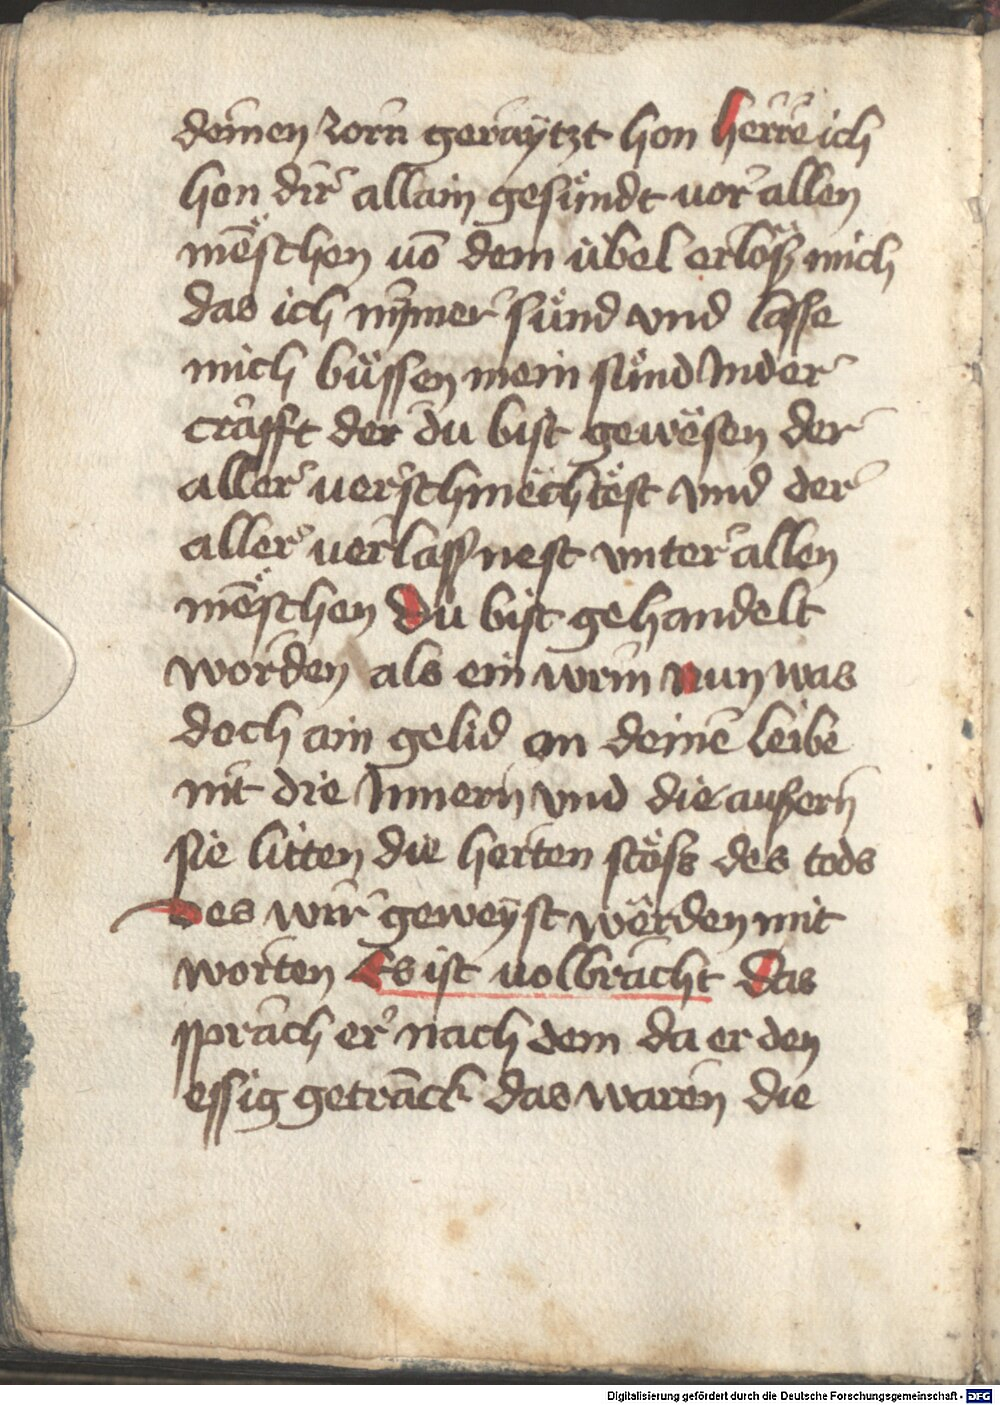 deinen zorn geraÿtzt hon herre ich
hon dir allain gesündt vor allen
mēschen uō dem übel erlöß mich
das ich nÿmer sünd vnd lasse
mich büssen mein sünd In der
crafft der du bist gewesen der
aller verschmechtest vnd der
aller verlassnest vnter allen
mēschen Du bist gehandelt
worden als ein wrm nun was
doch ain gelid an deinē leibe
nit die Innern vnd die aussern
sie litten die herten stöss des tods
Des wir geweÿst werden mit
worten Es ist uolbracht Das
sprach er nach dem da er den
essig getranck das waren die
Digitalisierung gefördert durch die Deutsche Forschungsgemeinschaft - DFG